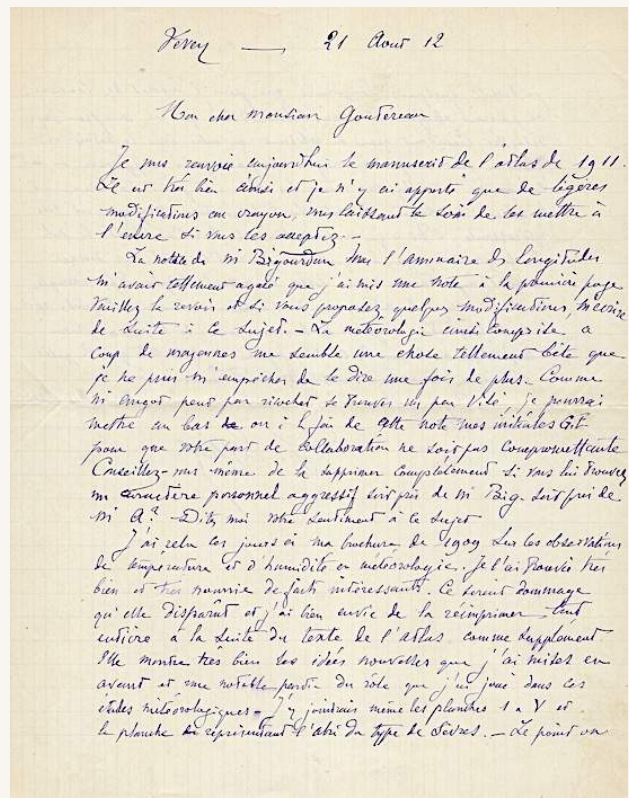 Vevey — 21 Aout 12
Mon cher monsieur Goutereau
Je vous renvoie aujourdhui le manuscrit de l'atlas de 1911.
Il est très bien ainsi et je n'y ai apporté que de légères
modifications au crayon, vous laissant le soin de les mettre à
l'encre si vous les acceptez. —
La notice de M Bigourdan dans l'annuaire des longitudes
m'avait tellement agacé que j'ai mis une note à la première page
Veuillez la revoir et si vous proposez quelques modifications, m'écrire
de suite à ce sujet. — La météorologie ainsi comprise a
coup de moyennes me semble une chose tellement bête que
je ne puis m'empêcher de le dire une fois de plus. Comme
M Angot peut par ricochet se trouver un peu visé, je pourrai
mettre au bas ou à la fin de cette note mes initiales
pour que votre part de collaboration ne soit pas compromettante
Conseillez-moi même de la supprimer complètement si vous lui trouvez
un caractère personnel aggressif soit près de M Big. soit près de
M A? — Dites moi votre sentiment à ce sujet
J'ai relu ces jours ci ma brochure de 1909 sur les observations
de température et d'humidité en météorologie. Je l'ai trouvée très
bien et très nourrie de faits intéressants. Ce serait dommage
qu'elle disparût et j'ai bien envie de la réimprimer tout
entière à la suite du texte de l'atlas comme supplément
Elle montre très bien les idées nouvelles que j'ai mises en
avant et une notable partie du rôle que j'ai joué dans ces
études météorologiques — J'y joindrais même les planches 1 a V et
la planche représentant l'abri du type de Sèvres. — Le point où